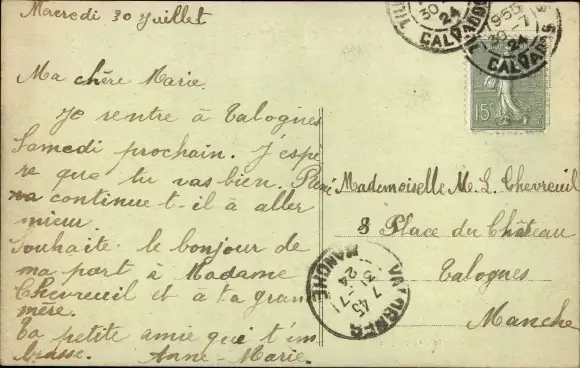 Macredi 30 Juillet
Ma chère Marie.
Je rentre à Valognes
Samedi prochain. J'espè
re que tu vas bien. René
continue t-il à aller
mieux
Souhaite le bonjour de
ma part à Madame
Chevreuil et à ta grand
mère.
Ta petite amie qui t'em
brasse. Anne-Marie.
Mademoiselle M. L. Chevreuil
8 Place du Château
Valognes
Manche
15c
30
24
CALVADOS
1955
30-7
24
CALVADOS
VALOGNES
7 45
31-7
24
MANCHE